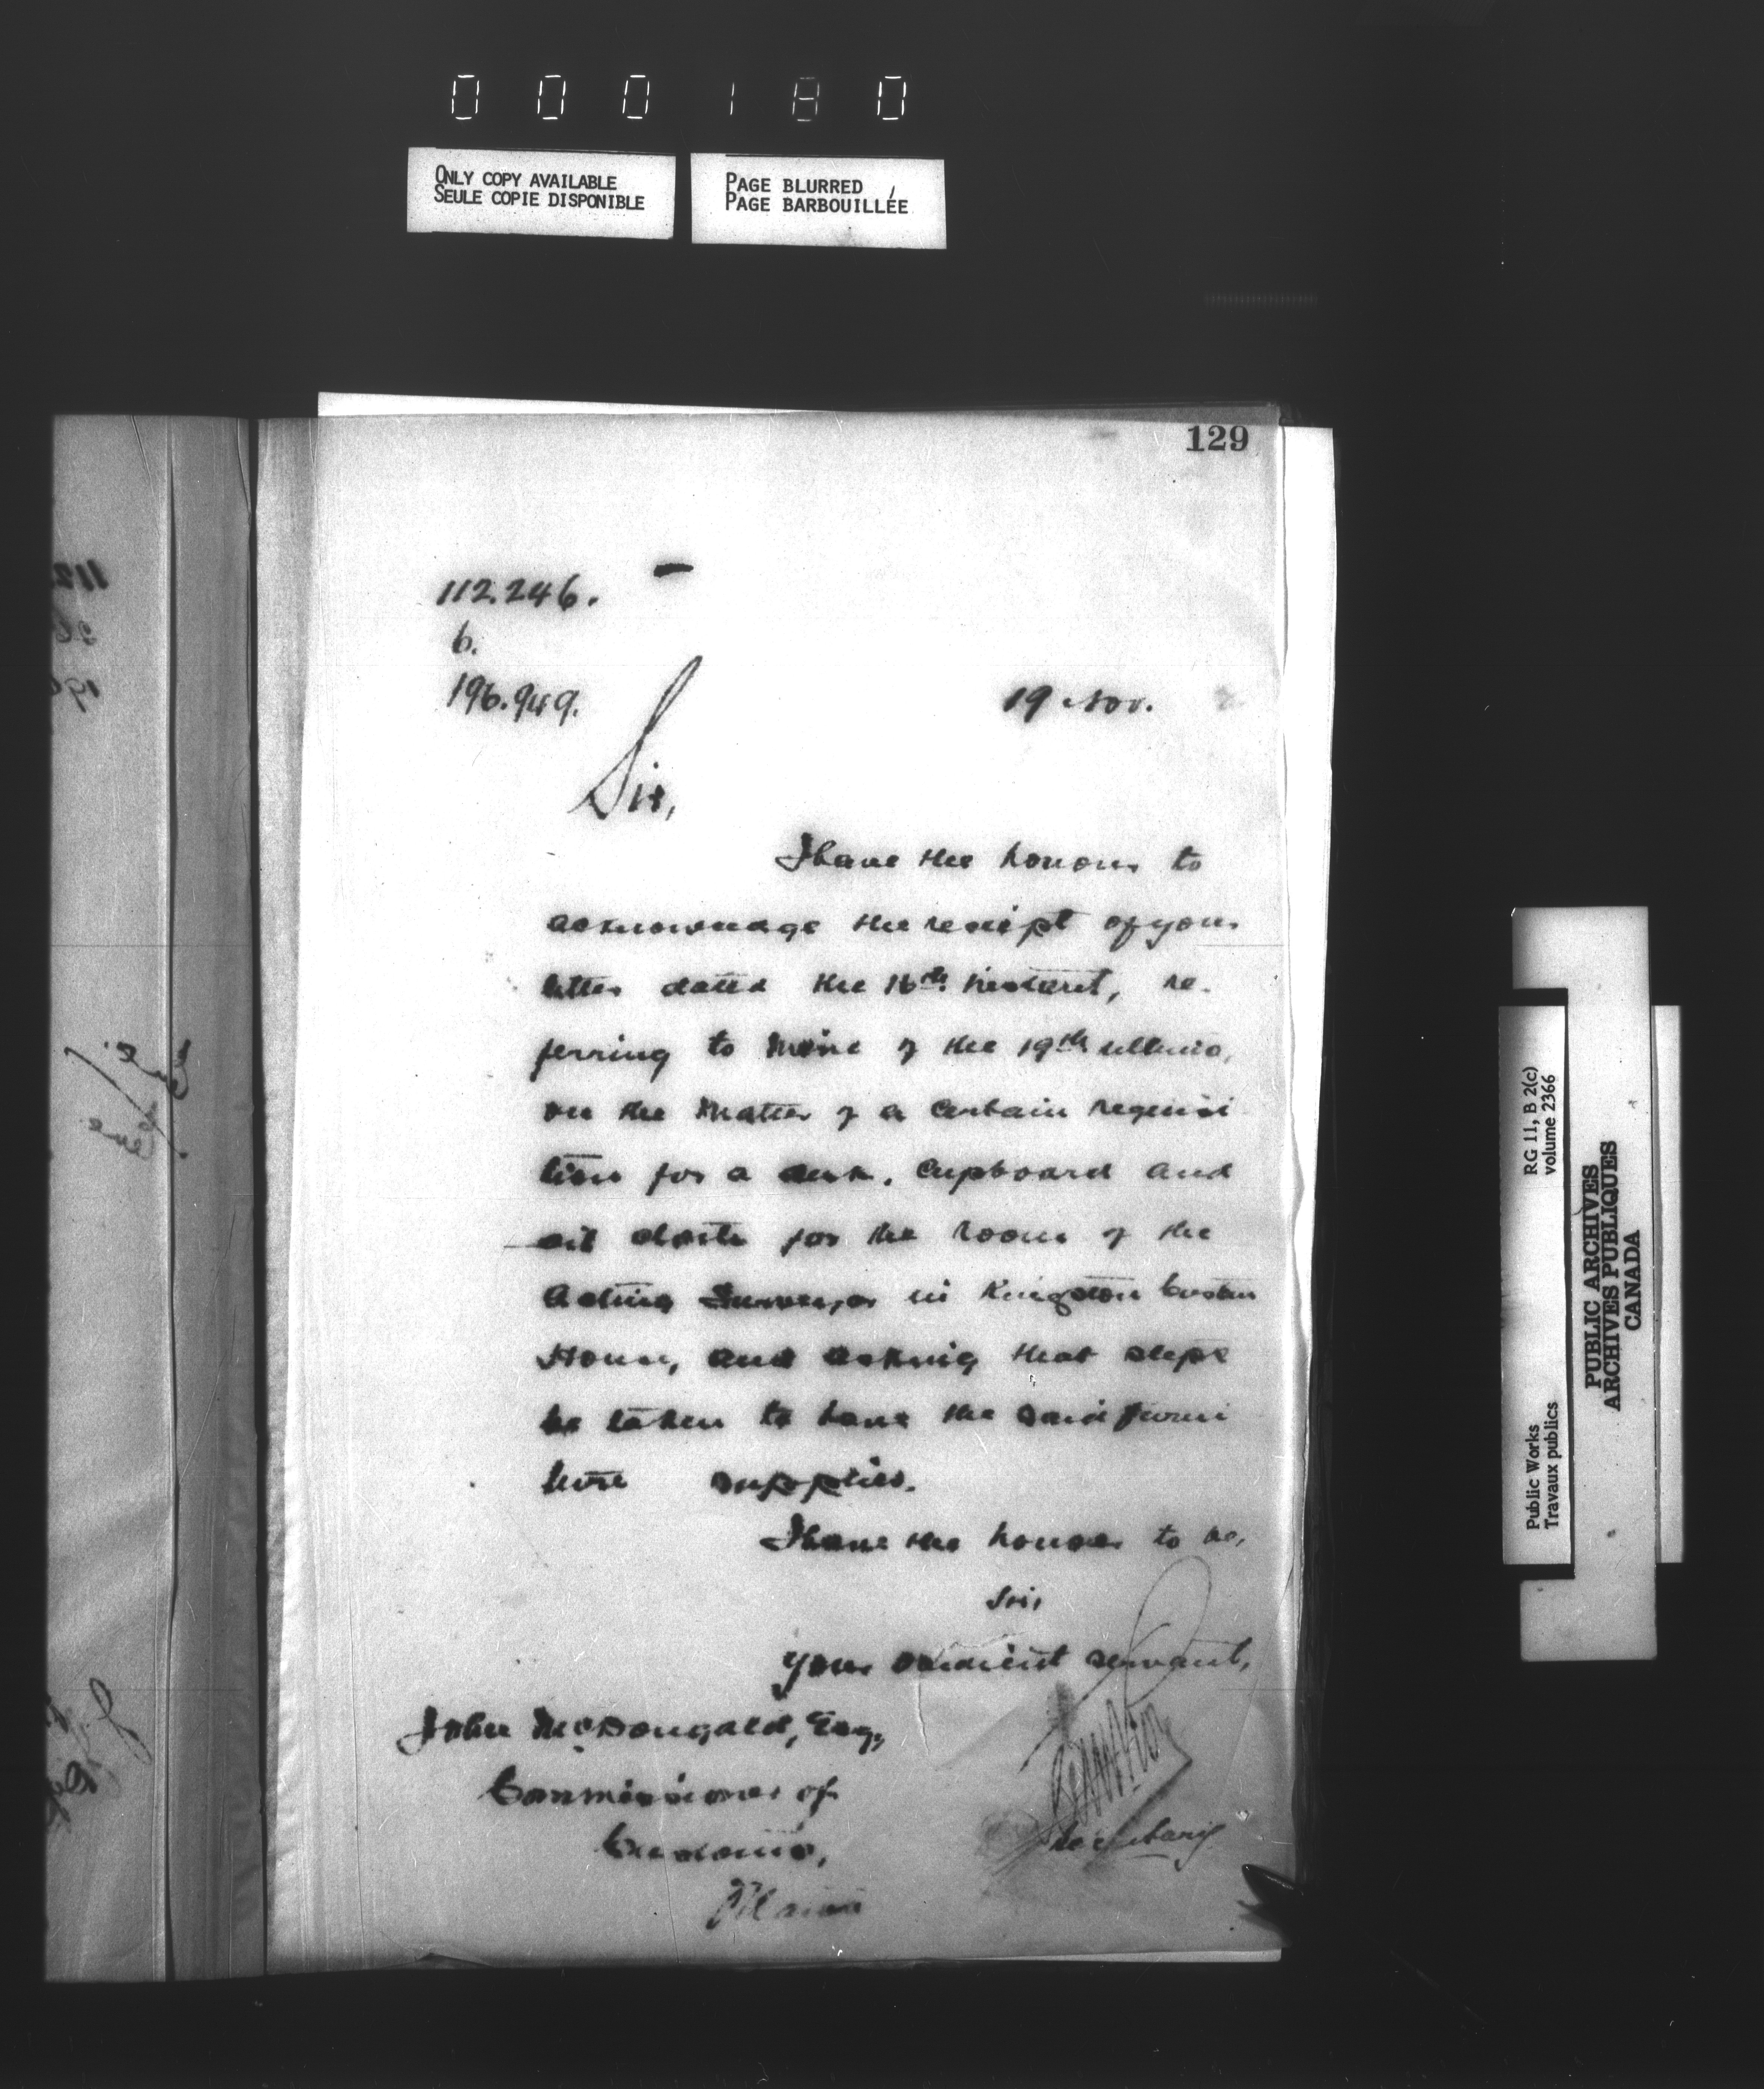 000180
ONLY COPY AVAILABLE
SEULE COPIE DISPONIBLE
PAGE BLURRED
PAGE BARBOUILLÉE
129
112.246.
6.
196.949.
19 Nov.
Sir,
I have the honour to
acknowledge the receipt of your
letter dated the 16th instant, re-
ferring to mine of the 19th ultimo,
on the matter of a certain requisi
tion for a desk, cupboard and
oil cloth for the room of the
Acting Surveyor in Kingston Custom
House, and asking that steps
be taken to have the said furni
ture supplied.
I have the honour to be,
Sir,
Your obedient servant,
John McDougald, Esq,
Secretary
Commissioner of
Customs,
Ottawa
Public Works
Travaux publics
RG 11, B 2(c)
volume 2366
PUBLIC ARCHIVES
ARCHIVES PUBLIQUES
CANADA